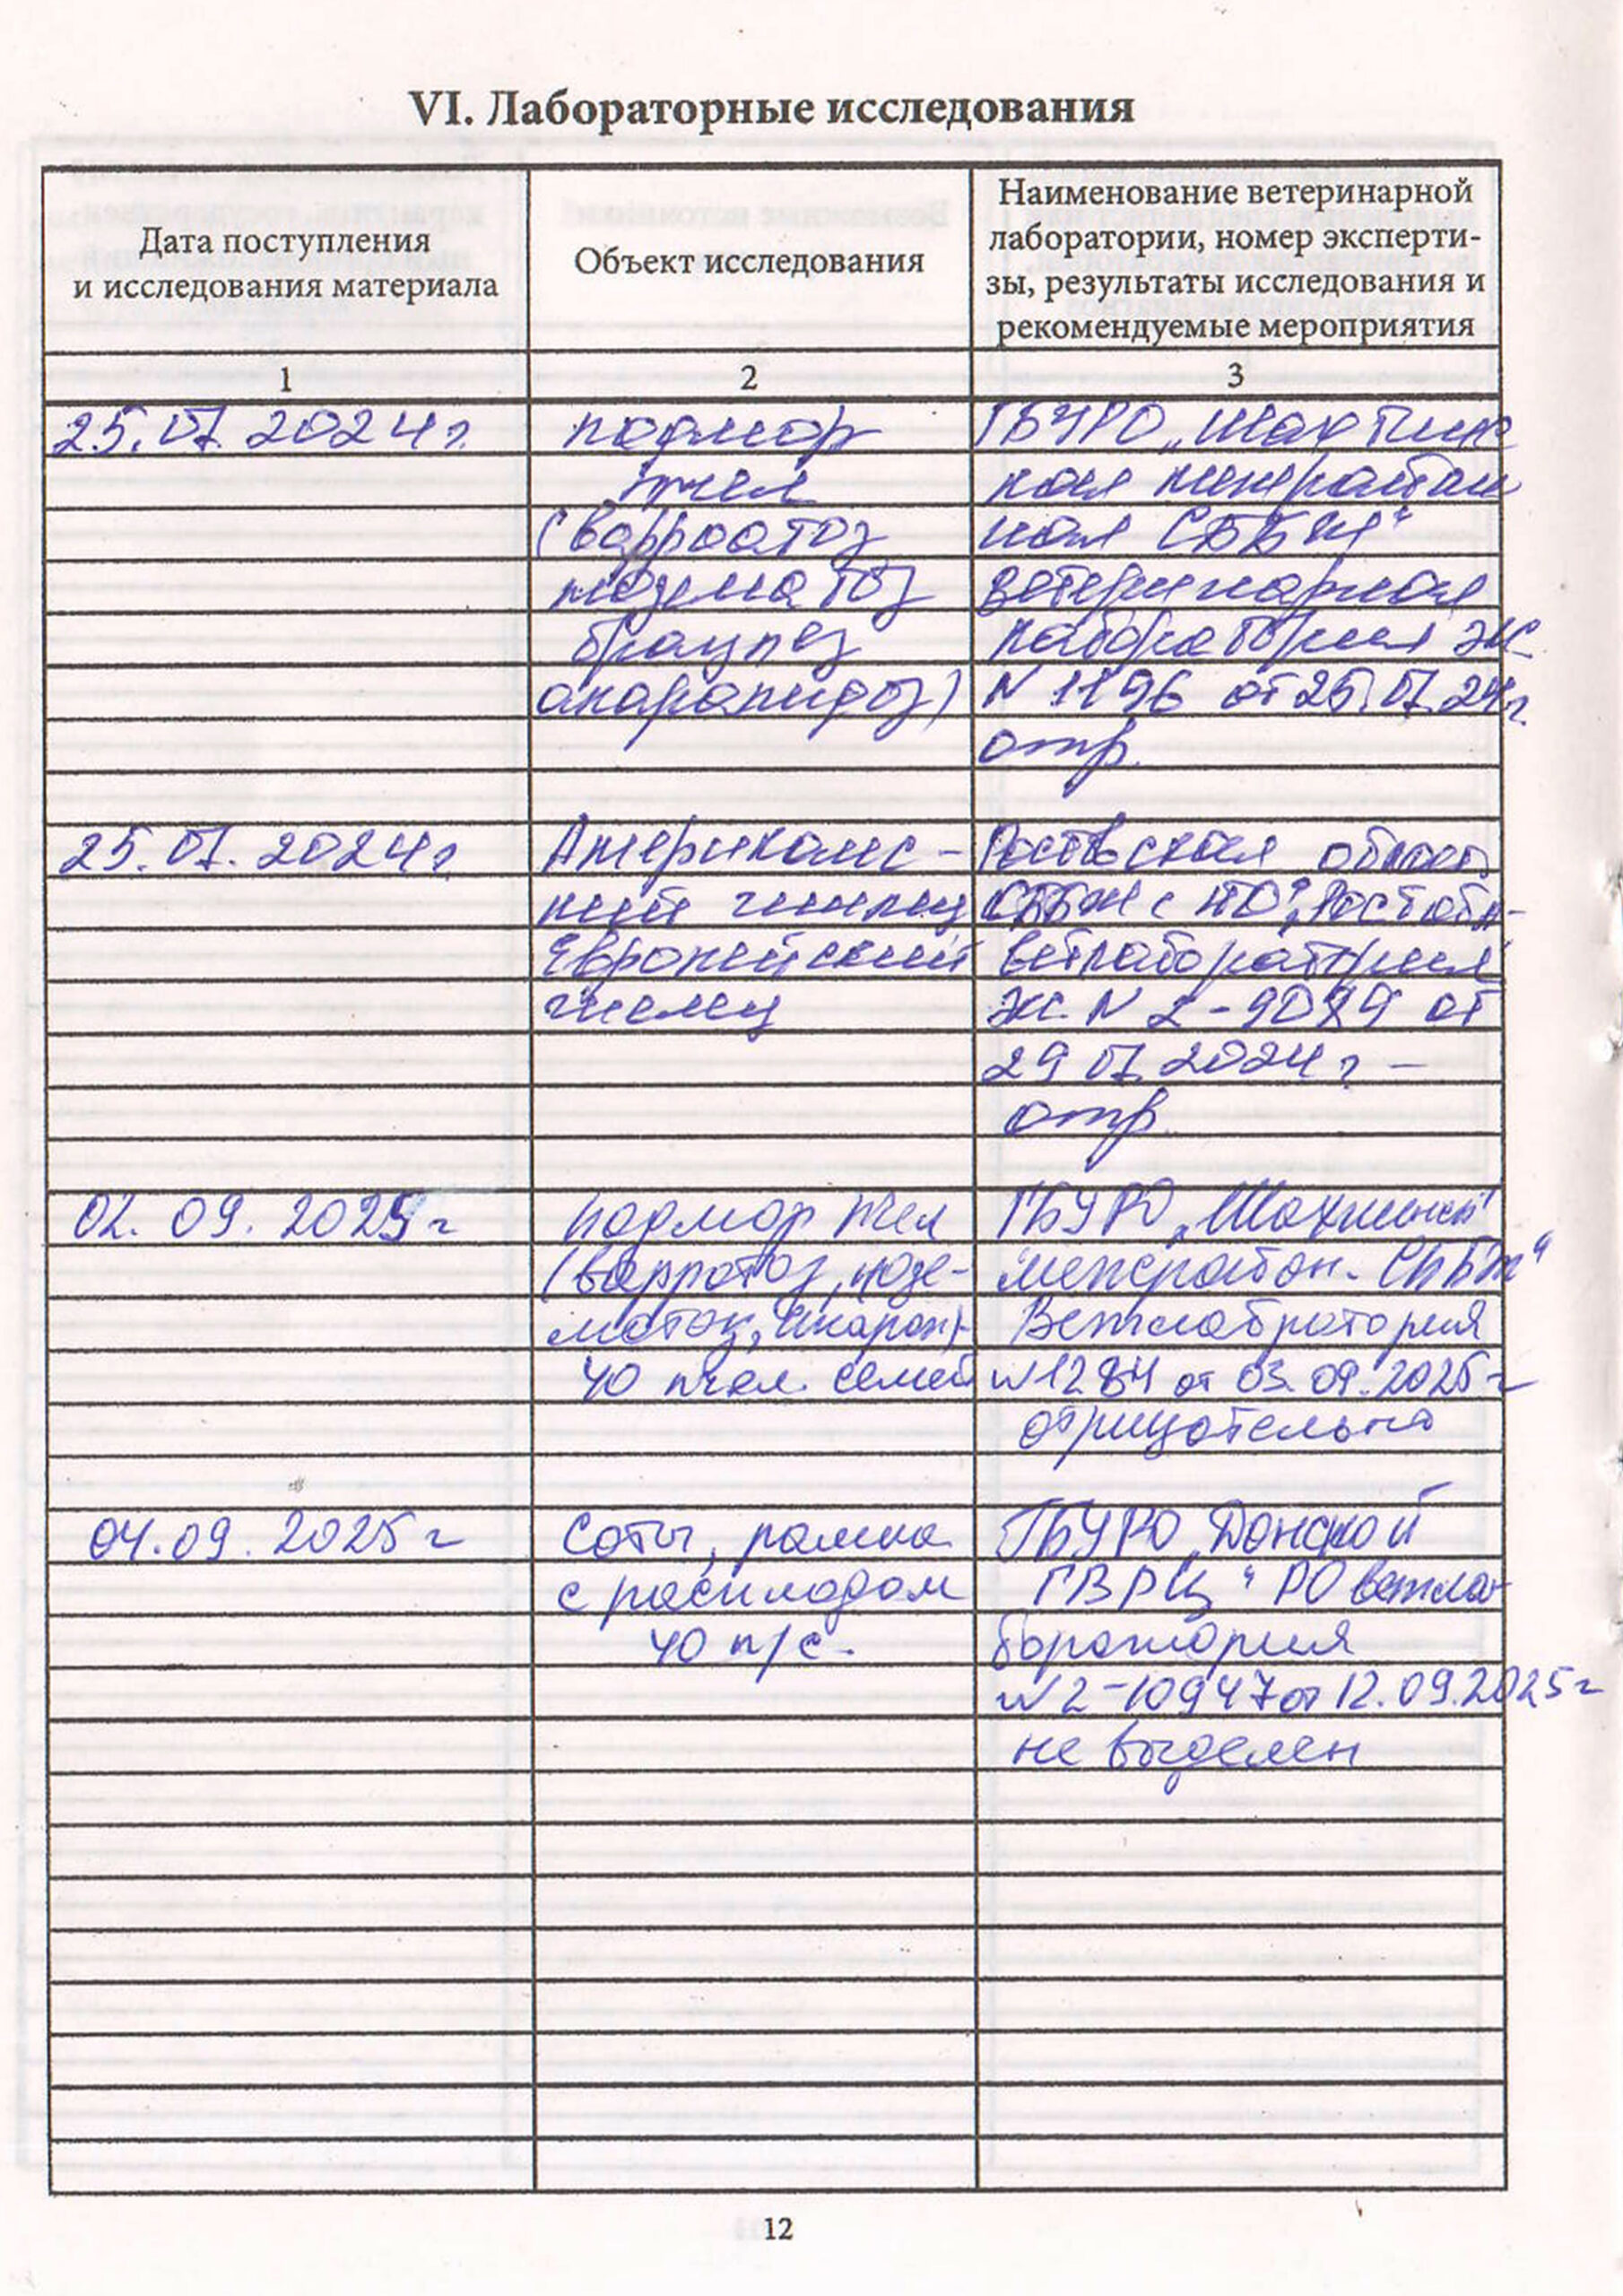 VI. Лабораторные исследования
Дата поступления
и исследования материала
Объект исследования
Наименование ветеринарной
лаборатории, номер эксперти-
зы, результаты исследования и
рекомендуемые мероприятия
1
2
3
25.07.2024г.
подмор
пчел
(варроатоз
нозематоз
браулез
акарапидоз)
ГБУРО „Шахтинс
кая межрайон
ная СББЖ“
ветеринарная
лаборатория эк.
N 1196 от 25.07.24г.
отр.
25.07.2024г.
Американс-
кий гнилец
Европейский
гнилец
Ростовская област
СББЖ с ПО „Ростобл-
ветлаборатория
эк. N 2-9089 от
29 07 2024 г –
отр
02. 09. 2025 г
подмор пчел
(варроотоз, нозе-
мотоз, акарап)-
40 пчел. семей
ГБУРО „Шахтинск
межрайон. СББЖ“
Ветлабротория
N 1284 от 03.09.2025 г
отрицательно
04.09.2025 г
Соты, рамка
с расплодом
40 п/с.
ГБУРО „Донской
ГВРЦ“ РО ветла-
боротория
N 2-10947 от 12.09.2025 г
не выделен
12